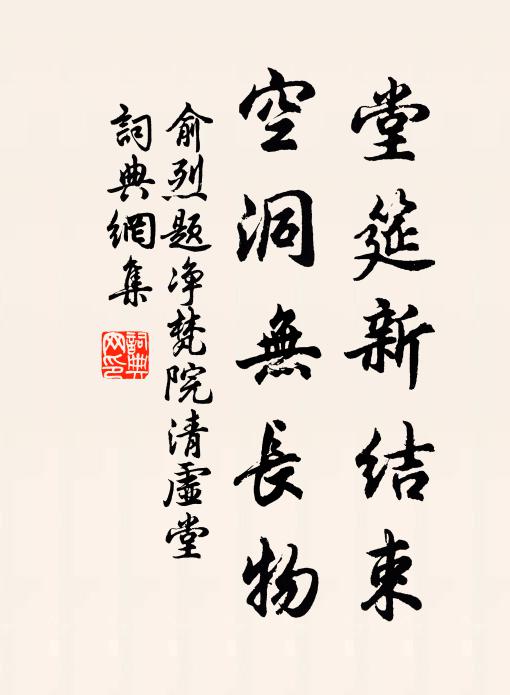 堂筵新结束
空洞無長物
俞烈题净梵院清虛堂
詞典網集
詞典網印